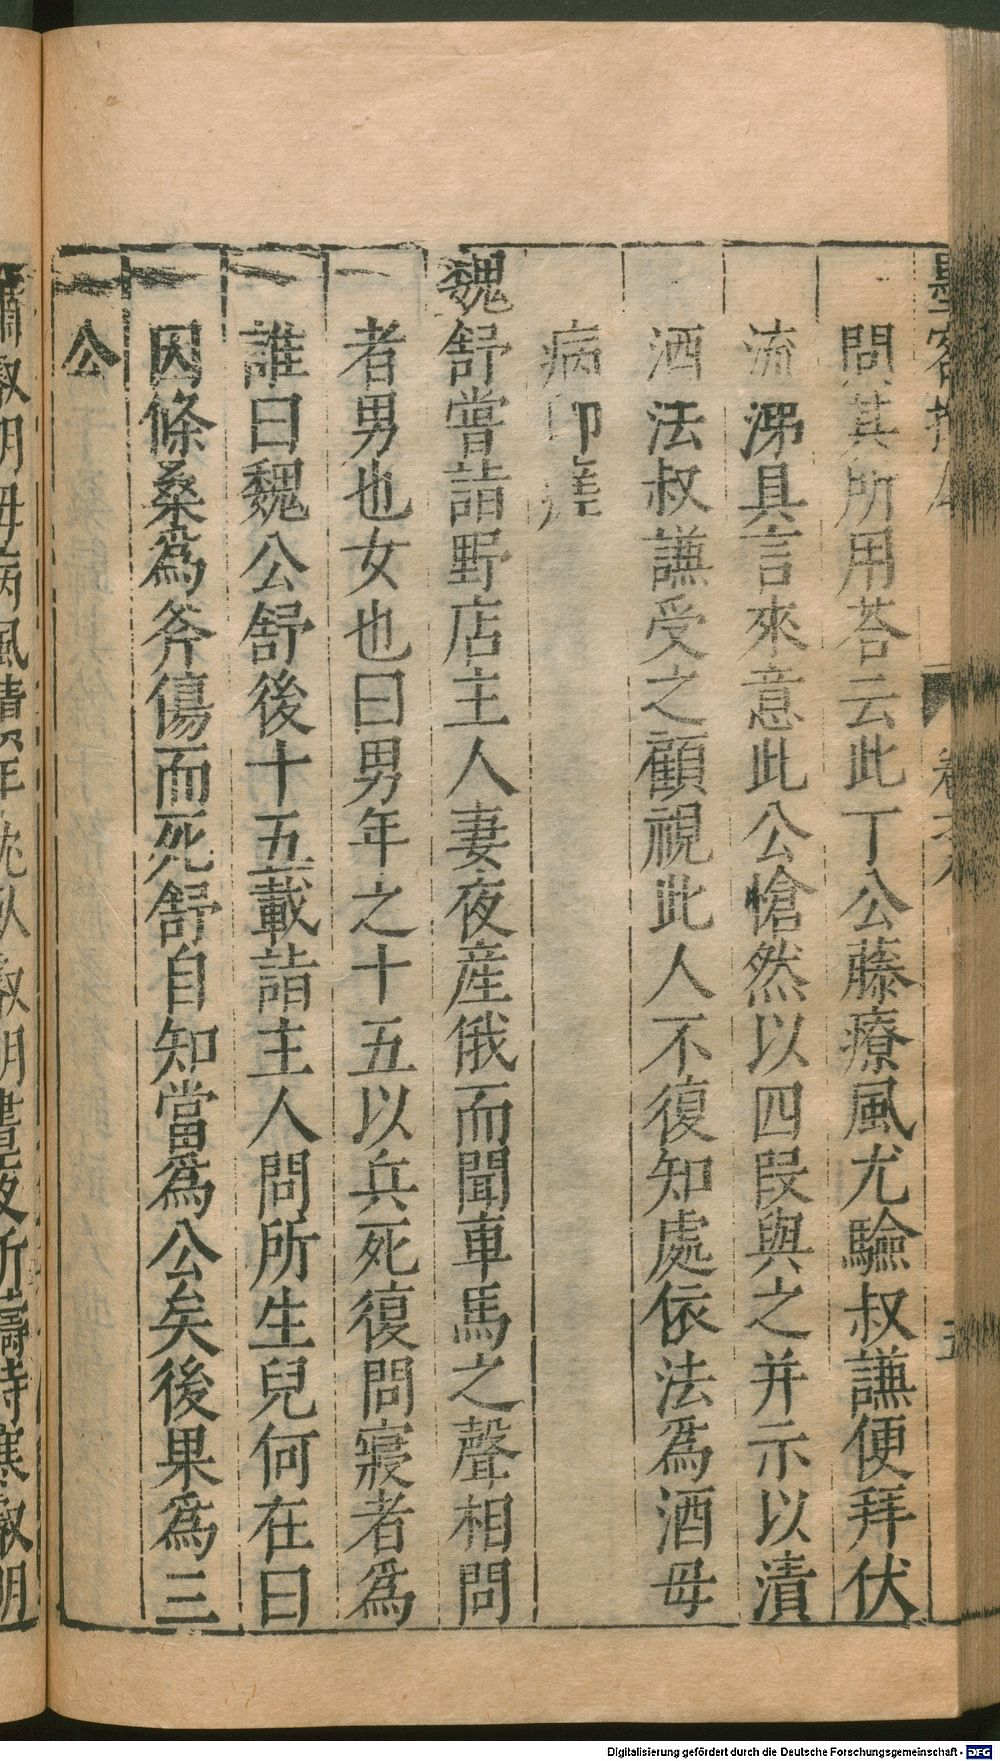 問其所用荅云此丁公藤療風尤驗叔謙便拜伏
流涕具言來意此公愴然以四段與之并示以漬
酒法叔謙受之顧視此人不復知處依法爲酒母
病即瘥
魏舒嘗詣野店主人妻夜産俄而聞車馬之聲相問
者男也女也曰男年之十五以兵死復問寢者爲
誰曰魏公舒後十五載詣主人問所生兒何在曰
因條桑爲斧傷而死舒自知當爲公矣後果爲三
公
Digitalisierung gefördert durch die Deutsche Forschungsgemeinschaft - DFG